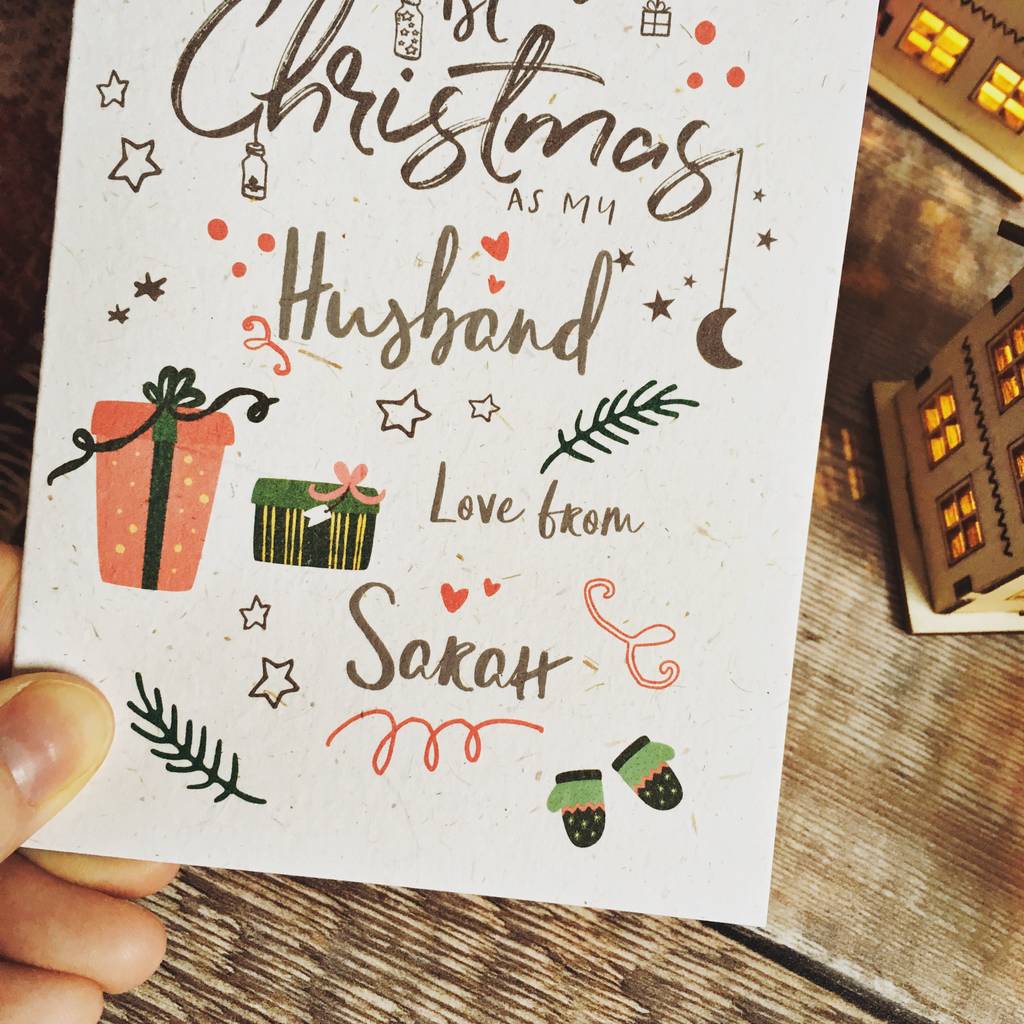 st
Christmas
AS MY
Husband
Love from
SARAH